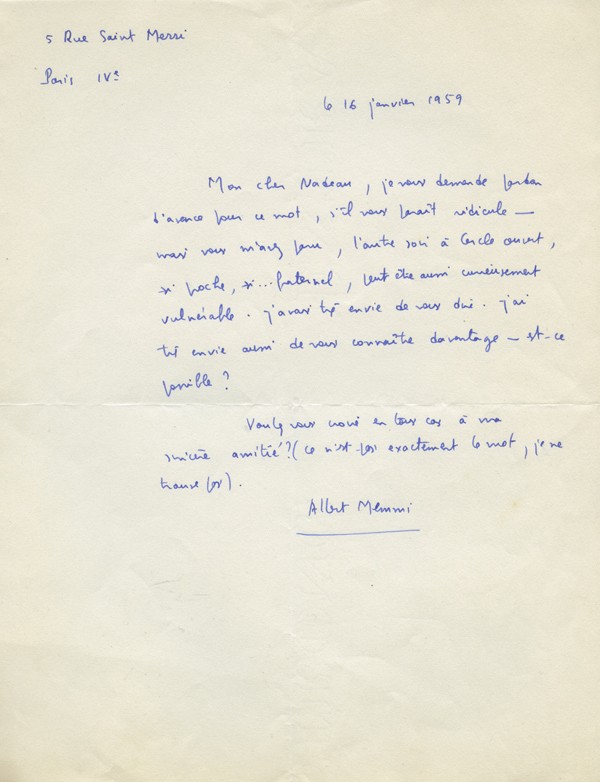 5 Rue Saint Merri
Paris IVe
le 16 janvier 1959
Mon cher Nadeau, je vous demande pardon
d'avance pour ce mot, s'il vous paraît ridicule —
mais vous m'avez paru, l'autre soir à Cercle ouvert,
si proche, si... fraternel, peut être aussi curieusement
vulnérable. j'avais très envie de vous dire. j'ai
très envie aussi de vous connaître davantage — est-ce
possible ?
Voulez vous croire en tous cas à ma
sincère amitié ? (ce n'est pas exactement le mot, je ne
trouve pas).
Albert Memmi